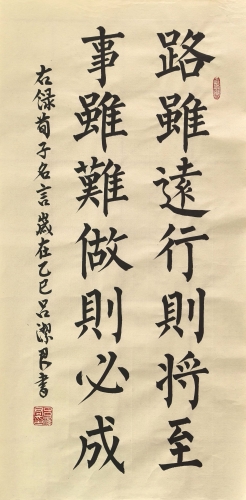 路雖遠行則將至
事雖難做則必成
右録荀子名言歲在乙巳呂潔君書